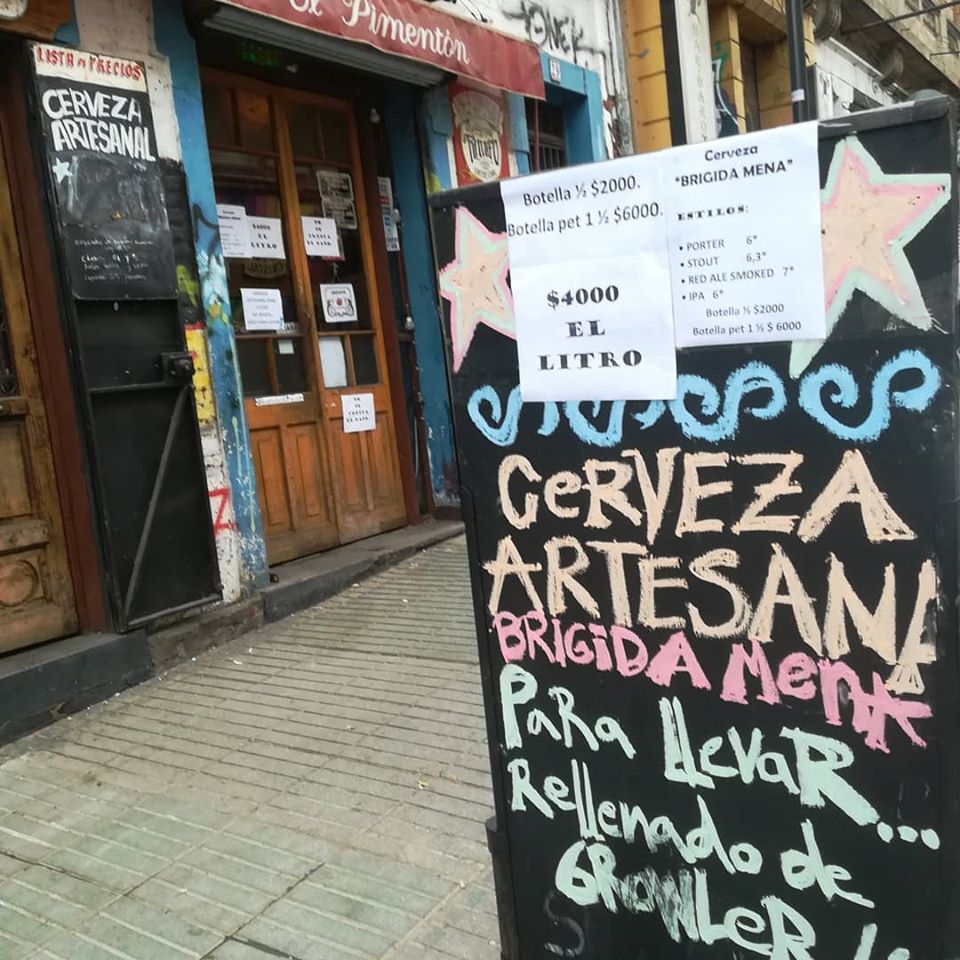 El Pimentón
LISTA de PRECIOS
CERVEZA
ARTESANAL
$4000
EL
LITRO
Botella ½ $2000.
Botella pet 1 ½ $6000.
$4000
EL
LITRO
Cerveza
"BRIGIDA MENA"
ESTILOS:
• PORTER 6°
• STOUT 6,3°
• RED ALE SMOKED 7°
• IPA 6°
Botella ½ $2000
Botella pet 1 ½ $ 6000
CERVEZA
ARTESANAL
BRIGIDA MENA
PaRa llevaR...
Rellenado de
GROWLER